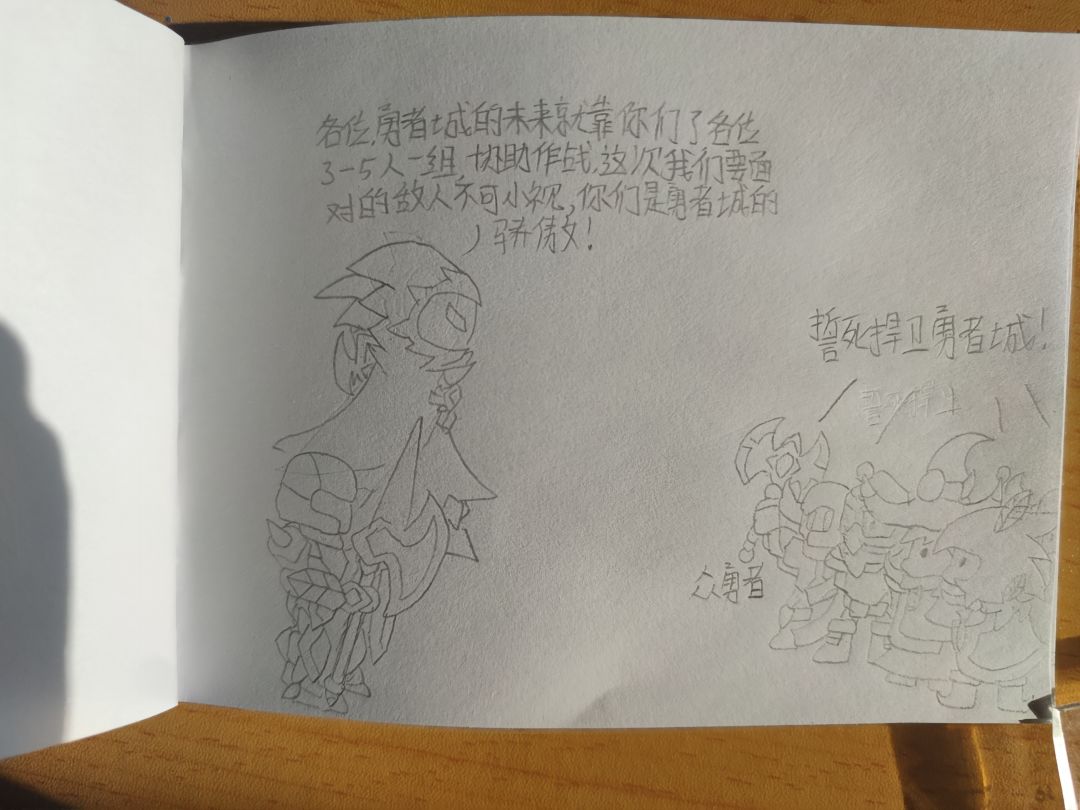 各位,勇者城的未来就靠你们了各位
3-5人一组,协助作战.这次我们要面
对的敌人不可小视,你们是勇者城的
骄傲!
誓死捍卫勇者城!
誓死捍卫
众勇者